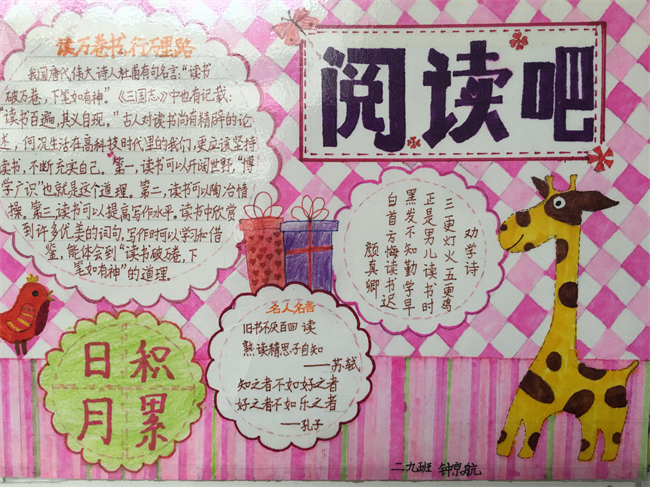 阅读吧
读万卷书,行万里路
我国唐代伟大诗人杜甫有句名言:“读书
破万卷,下笔如有神”。《三国志》中也有记载:
“读书百遍,其义自现。”古人对读书尚有精辟的论
述,何况生活在高科技时代里的我们,更应该坚持
读书,不断充实自己。第一,读书可以开阔世野,“博
学广识”也就是这个道理。第二,读书可以陶冶情
操。第三,读书可以提高写作水平。读书中欣赏
到许多优美的词句,写作时可以学习和借
鉴,能体会到“读书破万卷,下
笔如有神”的道理。
劝学诗
三更灯火五更鸡
正是男儿读书时
黑发不知勤学早
白首方悔读书迟
颜真卿
名人名言
旧书不厌百回读
熟读精思子自知
——苏轼
知之者不如好之者
好之者不如乐之者
——孔子
日积
月累
二九班 钟京航